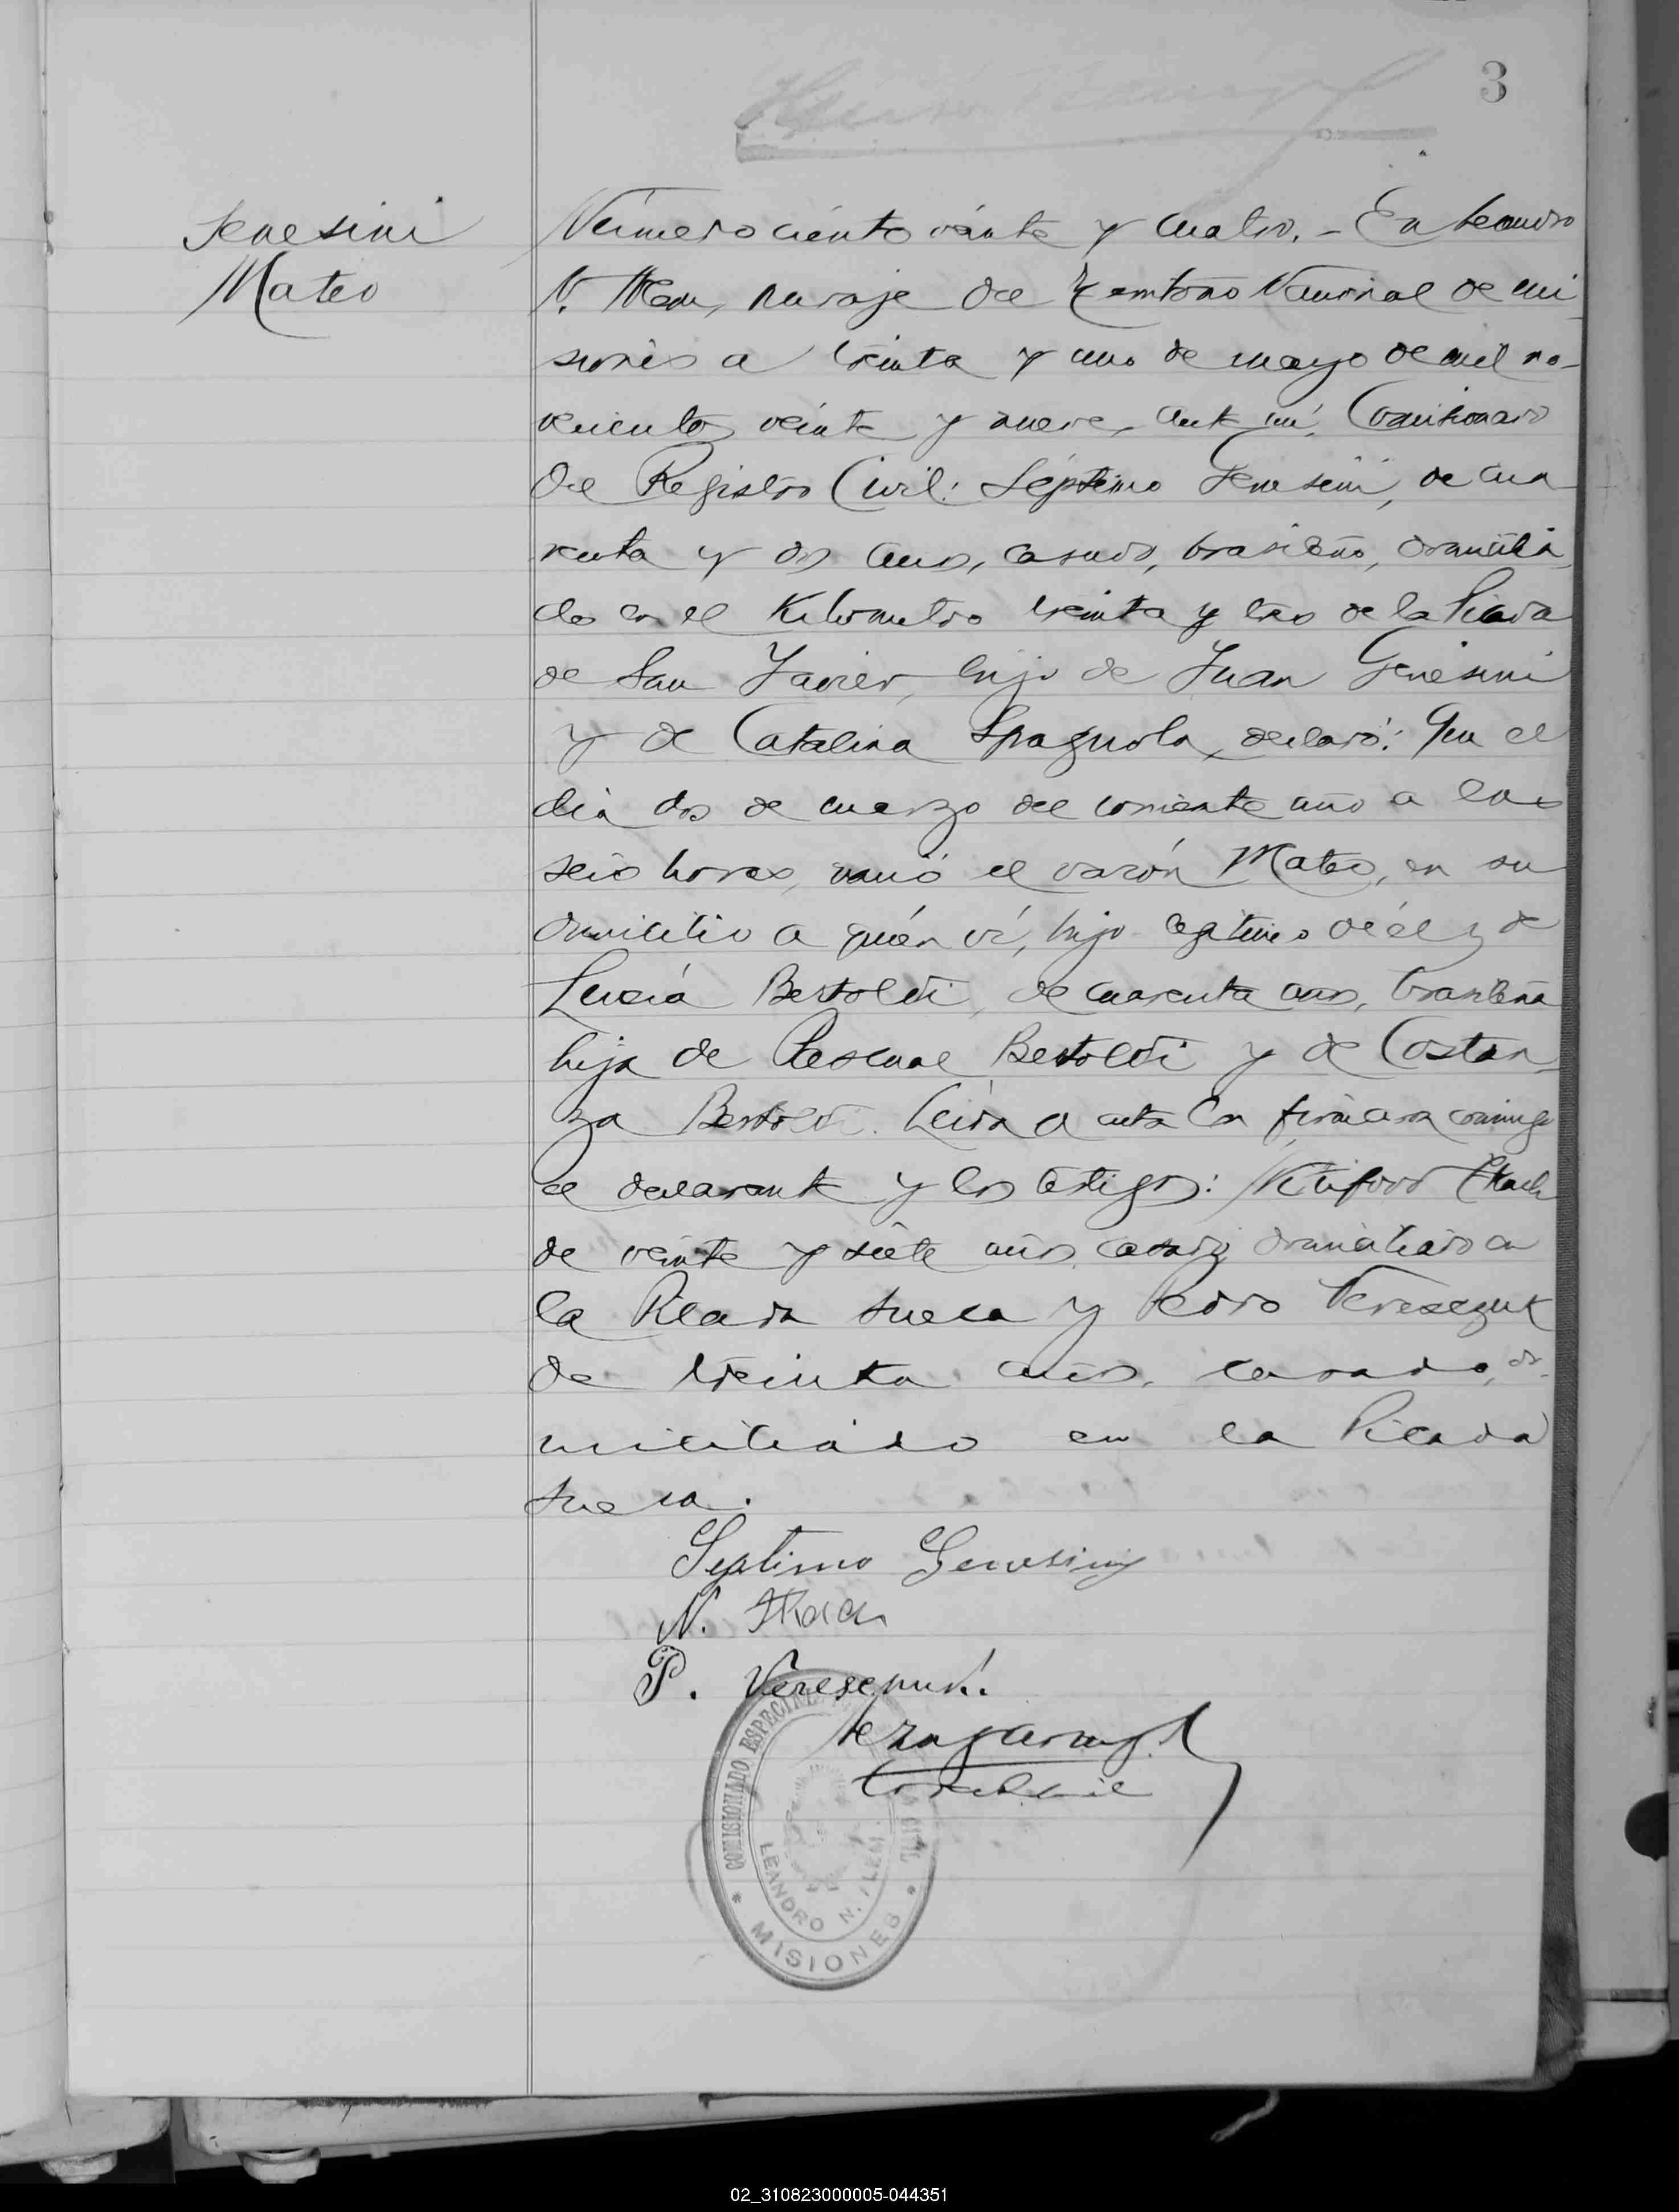 3
Genesini
Mateo
Número ciento veinte y cuatro. - En Leandro
N. Alem, paraje del Territorio Nacional de Mi-
siones a treinta y uno de mayo de mil no-
vecientos veinte y nueve, ante mí, Comisionado
del Registro Civil: Séptimo Genesini, de cua
renta y dos años, casado, brasileño, domicilia-
do en el Kilometro treinta y tres de la Picada
de San Javier, hijo de Juan Genesini
y de Catalina Spagnola, declaró: Que el
día dos de marzo del corriente año a las
seis horas, nació el varón Mateo, en su
domicilio a quién ví, hijo legítimo de él y de
Lucía Bertoldi, de cuarenta años, brasileña
hija de Pascual Bertoldi y de Costan-
za Bertoldi. Leída el acta la firmaron conmigo
el declarante y los testigos:
de veinte y siete años, casado, domiciliado en
la Picada Sueca y Pedro Veresezuk
de treinta años, casado, do-
miciliado en la Picada
Sueca.
Septimo Genesini
N.
P.
COMISIONADO ESPECIAL CIVIL
LEANDRO N. ALEM.
* MISIONES *
02_310823000005-044351